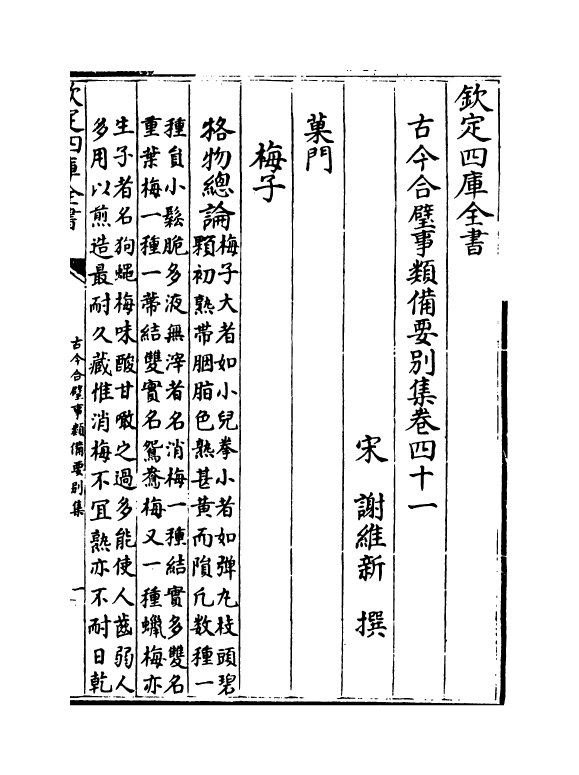 欽定四庫全書
古今合璧事類備要別集卷四十一
宋　謝維新　撰
菓門
梅子
格物總論
梅子大者如小兒拳小者如弹丸枝頭碧
顆初熟帶胭脂色熟甚黄而隕凢数種一
種貟小鬆脆多液無滓者名消梅一種結實多雙名
重葉梅一種一蒂結雙實名鴛鴦梅又一種蠟梅亦
生子者名狗蠅梅味酸甘噉之過多能使人齒弱人
多用以煎造最耐久藏惟消梅不冝熟亦不耐日乾
欽定四庫全書
古今合璧事類備要別集
一